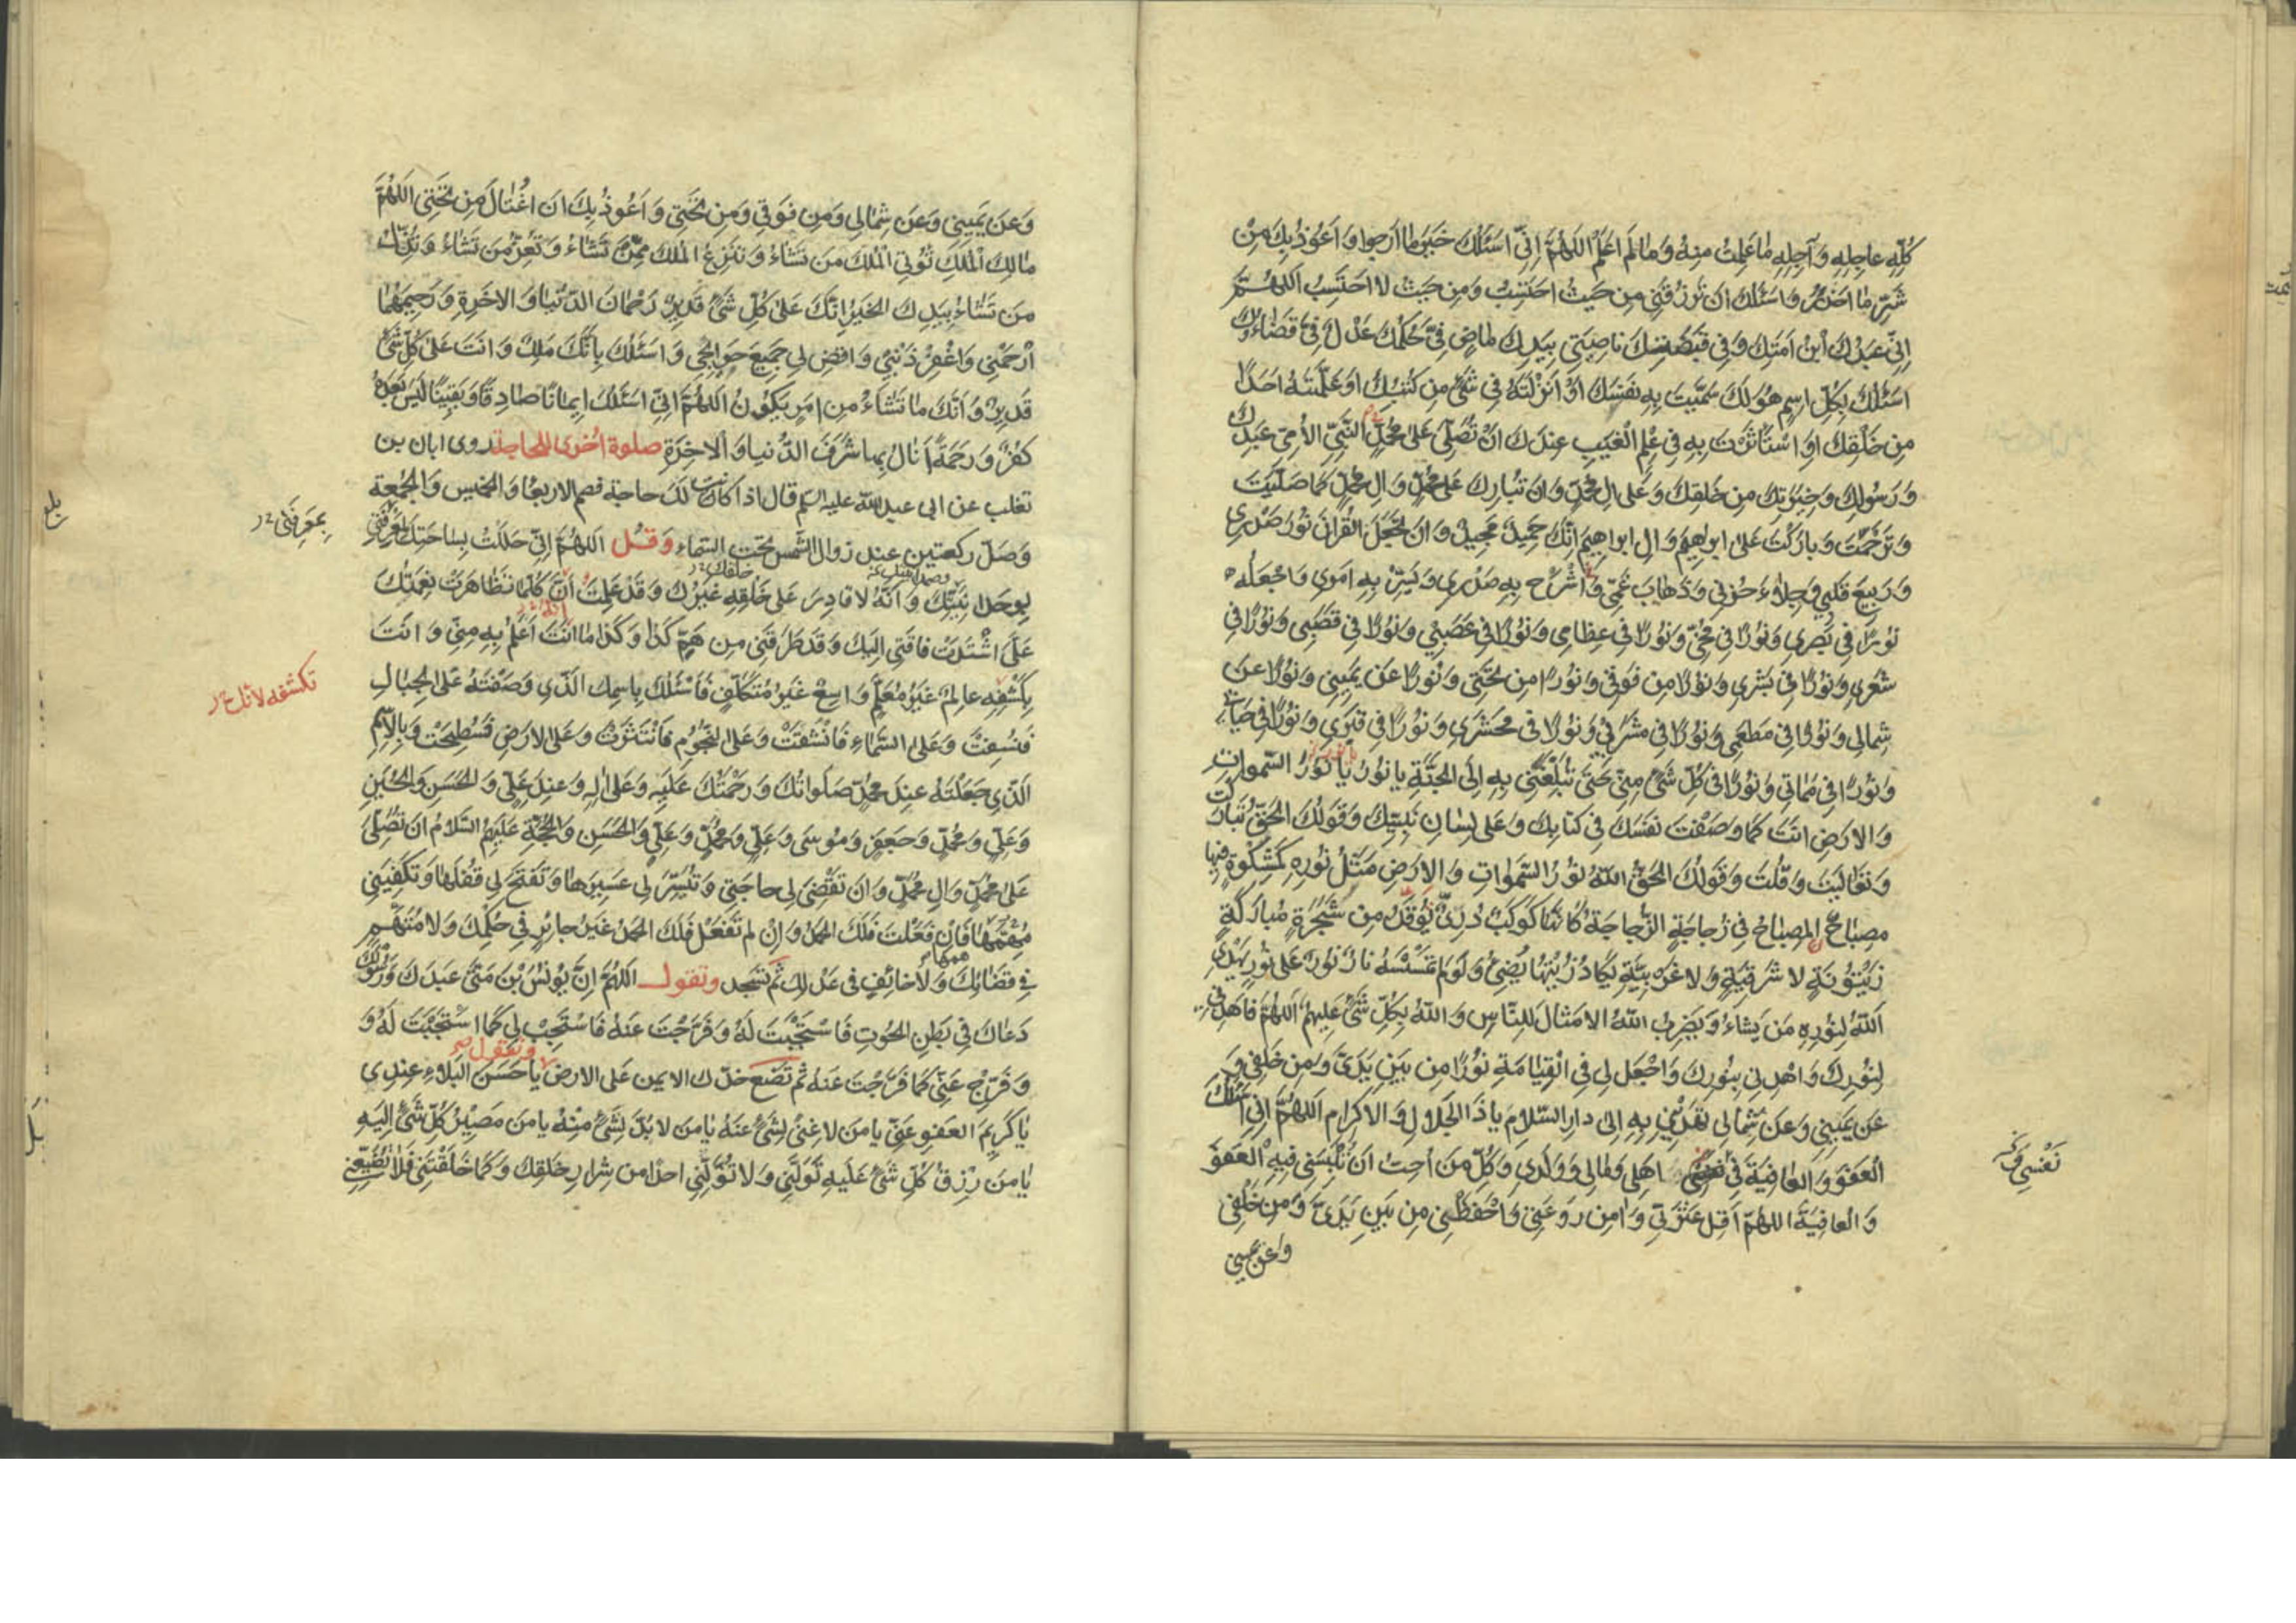 كُلِّهِ عاجِلِهِ وَآجِلِهِ ما عَلِمْتُ مِنْهُ وَما لَمْ اَعْلَمْ اَللّهُمَّ اِنّي اَسْئَلُكَ خَيْرَ ما اَرْجوا وَاَعُوذُ بِكَ مِنْ
شَرِّ ما اَحْذَرُ وَاَسْئَلُكَ اَنْ تَرْزُقَني مِنْ حَيْثُ اَحْتَسِبُ وَمِنْ حَيْثُ لا اَحْتَسِبُ اَللّهُمَّ
اِنّي عَبْدُكَ ابْنُ اَمَتِكَ وَفي قَبْضَتِكَ ناصِيَتي بِيَدِكَ ماضٍ فِيَّ حُكْمُكَ عَدْلٌ فِيَّ قَضاؤُكَ
اَسْئَلُكَ بِكُلِّ اسْمٍ هُوَ لَكَ سَمَّيْتَ بِهِ نَفْسَكَ اَوْ اَنْزَلْتَهُ في شَيْءٍ مِنْ كُتُبِكَ اَوْ عَلَّمْتَهُ اَحَداً
مِنْ خَلْقِكَ اَوِ اسْتَأْثَرْتَ بِهِ في عِلْمِ الْغَيْبِ عِنْدَكَ اَنْ تُصَلِّيَ عَلى مُحَمَّدٍ النَّبِيِّ الاُمِّيِّ عَبْدِكَ
وَرَسُولِكَ وَخِيَرَتِكَ مِنْ خَلْقِكَ وَعَلى الِ مُحَمَّدٍ وَاَنْ تُبارِكَ عَلى مُحَمَّدٍ وَالِ مُحَمَّدٍ كَما صَلَّيْتَ
وَتَرَحَّمْتَ وَبارَكْتَ عَلى اِبْراهيمَ وَالِ اِبْراهيمَ اِنَّكَ حَميدٌ مَجيدٌ وَاَنْ تَجْعَلَ القُرْانَ نُورَ صَدْري
وَرَبيعَ قَلْبي وَجِلاءَ حُزْني وَذَهابَ غَمّي وَاشْرَحْ بِهِ صَدْري وَيَسِّرْ بِهِ اَمْري وَاجْعَلْهُ
نُوراً في بَصَري وَنُوراً في مُخّي وَنُوراً في عِظامي وَنُوراً في عَصَبي وَنُوراً في قَصَبي وَنُوراً في
شَعْري وَنُوراً في بَشَري وَنُوراً مِنْ فَوْقي وَنُوراً مِنْ تَحْتي وَنُوراً عَنْ يَميني وَنُوراً عَنْ
شِمالي وَنُوراً في مَطْعَمي وَنُوراً في مَشْرَبي وَنُوراً في مَحْشَري وَنُوراً في قَبْري وَنُوراً في حَياتي
وَنُوراً في مَماتي وَنُوراً في كُلِّ شَيْءٍ مِنّي حَتّى تُبَلِّغَني بِهِ اِلَى الجَنَّةِ يا نُورُ يا نُورَ السَّمواتِ
وَالاَرْضِ اَنْتَ كَما وَصَفْتَ نَفْسَكَ في كِتابِكَ وَعَلى لِسانِ نَبِيِّكَ وَقَوْلُكَ الْحَقُّ تَبارَكْتَ
وَتَعالَيْتَ وَقُلْتَ وَقَوْلُكَ الْحَقُّ اَللّهُ نُورُ السَّمواتِ وَالاَرْضِ مَثَلُ نُورِهِ كَمِشْكوةٍ فيها
مِصْباحٌ اَلْمِصْباحُ في زُجاجَةٍ الزُّجاجَةُ كَاَنَّها كَوْكَبٌ دُرِّيٌّ يُوقَدُ مِنْ شَجَرَةٍ مُبارَكَةٍ
زَيْتُونَةٍ لا شَرْقِيَّةٍ وَلا غَرْبِيَّةٍ يَكادُ زَيْتُها يُضيءُ وَلَوْ لَمْ تَمْسَسْهُ نارٌ نُورٌ عَلى نُورٍ يَهْدِي
اللّهُ لِنُورِهِ مَنْ يَشاءُ وَيَضْرِبُ اللّهُ الاَمْثالَ لِلنّاسِ وَاللّهُ بِكُلِّ شَيْءٍ عَليمٌ اَللّهُمَّ فَاهْدِني
لِنُورِكَ وَاهْدِني بِنُورِكَ وَاجْعَلْ لي فِي الْقِيامَةِ نُوراً مِنْ بَيْنِ يَدَيَّ وَمِنْ خَلْفي وَ
عَنْ يَميني وَعَنْ شِمالي تَهْديني بِهِ اِلى دارِ السَّلامِ يا ذَا الْجَلالِ وَالاِكْرامِ اَللّهُمَّ اِنّي اَسْئَلُكَ
الْعَفْوَ وَالْعافِيَةَ في اَهْلي وَمالي وَوَلَدي وَكُلِّ مَنْ اُحِبُّ اَنْ تُلْبِسَني فيهِ الْعَفْوَ
نَفْسي وَفي
وَالْعافِيَةَ اللّهُمَّ اَقِلْ عَثْرَتي وَامِنْ رَوْعَتي وَاحْفَظْني مِنْ بَيْنِ يَدَيَّ وَمِنْ خَلْفي
وعن يميني
وَعَنْ يَميني وَعَنْ شِمالي وَمِنْ فَوْقي وَمِنْ تَحْتي وَاَعُوذُ بِكَ اَنْ اُغْتالَ مِنْ تَحْتي اَللّهُمَّ
مالِكَ الْمُلْكِ تُؤْتي الْمُلْكَ مَنْ تَشاءُ وَتَنْزِعُ الْمُلْكَ مِمَّنْ تَشاءُ وَتُعِزُّ مَنْ تَشاءُ وَتُذِلُّ
مَنْ تَشاءُ بِيَدِكَ الخَيْرُ اِنَّكَ عَلى كُلِّ شَيْءٍ قَديرٌ رَحْمانَ الدُّنْيا وَالاخِرَةِ وَرَحيمَهُما
اِرْحَمْني وَاغْفِرْ ذَنْبي وَاقْضِ لي جَميعَ حَوائِجي وَاَسْئَلُكَ بِاَنَّكَ مَلِكٌ وَاَنْتَ عَلى كُلِّ شَيْءٍ
قَديرٌ وَاَنَّكَ ما تَشاءُ مِنْ اَمْرٍ يَكُونُ اَللّهُمَّ اِنّي اَسْئَلُكَ ايماناً صادِقاً وَيَقيناً لَيْسَ بَعْدَهُ
كُفْرٌ وَرَحْمَةً اَنالُ بِها شَرَفَ الدُّنْيا وَالاخِرَةِ صلوة اُخرى للحاجة روى ابان بن
تغلب عن ابى عبد الله عليه السلم قال اذا كانت لك حاجة فصم الاربعا والخميس والجمعة
وَصَلِّ ركعتين عند زوال الشمس تحت السّماء وَقُل اَللّهُمَّ اِنّي حَلَلْتُ بِساحَتِكَ لِمَعْرِفَتي
بِمَعْرِفَتي
بِوَحْدانِيَّتِكَ وَاَنَّهُ لا قادِرَ عَلى خَلْقِهِ غَيْرُكَ وَقَدْ عَلِمْتُ اَنَّ كُلَّما تَظاهَرَتْ نِعْمَتُكَ
عَلَيَّ اشْتَدَّتْ فاقَتي اِلَيْكَ وَقَدْ طَرَقَني مِنْ هَمِّ كَذا وَكَذا ما اَنْتَ اَعْلَمُ بِهِ مِنّي وَاَنْتَ
بِكَشْفِهِ عالِمٌ غَيْرُ مُعَلَّمٍ وَاسِعٌ غَيْرُ مُتَكَلِّفٍ فَاَسْئَلُكَ بِاسْمِكَ الَّذي وَضَعْتَهُ عَلَى الْجِبالِ
فَنُسِفَتْ وَعَلَى السَّماءِ فَانْشَقَّتْ وَعَلَى النُّجُومِ فَانْتَثَرَتْ وَعَلَى الاَرْضِ فَسُطِحَتْ وَبِالاِسْمِ
الَّذي جَعَلْتَهُ عِنْدَ مُحَمَّدٍ صَلَواتُكَ وَرَحْمَتُكَ عَلَيْهِ وَعَلى الِهِ وَعِنْدَ عَلِيٍّ وَالْحَسَنِ وَالْحُسَيْنِ
وَعَلِيٍّ وَمُحَمَّدٍ وَجَعْفَرٍ وَمُوسى وَعَلِيٍّ وَمُحَمَّدٍ وَعَلِيٍّ وَالْحَسَنِ وَالْحُجَّةِ عَلَيْهِمُ السَّلامُ اَنْ تُصَلِّيَ
عَلى مُحَمَّدٍ وَالِ مُحَمَّدٍ وَاَنْ تَقْضِيَ لي حاجَتي وَتُيَسِّرَ لي عَسيرَها وَتَفْتَحَ لي قُفْلَها وَتَكْفِيَني
مُهِمَّها فَاِنْ فَعَلْتَ فَلَكَ الْحَمْدُ وَاِنْ لَمْ تَفْعَلْ فَلَكَ الْحَمْدُ غَيْرَ جائِرٍ في حُكْمِكَ وَلا مُتَّهَمٍ
في قَضائِكَ وَلا خائِفٍ في عَدْلِكَ ثُمَّ تَسْجُد وتقول اَللّهُمَّ اِنَّ يُونُسَ بْنَ مَتّى عَبْدَكَ وَرَسُولَكَ
دَعاكَ في بَطْنِ الْحُوتِ فَاسْتَجَبْتَ لَهُ وَفَرَّجْتَ عَنْهُ فَاسْتَجِبْ لي كَما اسْتَجَبْتَ لَهُ وَ
وَفَرِّجْ عَنّي كَما فَرَّجْتَ عَنْهُ ثُمَّ تَضَع خدّك الايمن على الارض وتقول يا حَسَنَ البَلاءِ عِنْدي
يا كَريمَ العَفْوِ عَنّي يا مَنْ لا غِنى لِشَيْءٍ عَنْهُ يا مَنْ لا بُدَّ لِشَيْءٍ مِنْهُ يا مَنْ مَصيرُ كُلِّ شَيْءٍ اِلَيْهِ
يا مَنْ رِزْقُ كُلِّ شَيْءٍ عَلَيْهِ تَوَلَّني وَلا تُوَلِّني اَحَداً مِنْ شِرارِ خَلْقِكَ وَكَما خَلَقْتَني فَلا تُضَيِّعْني